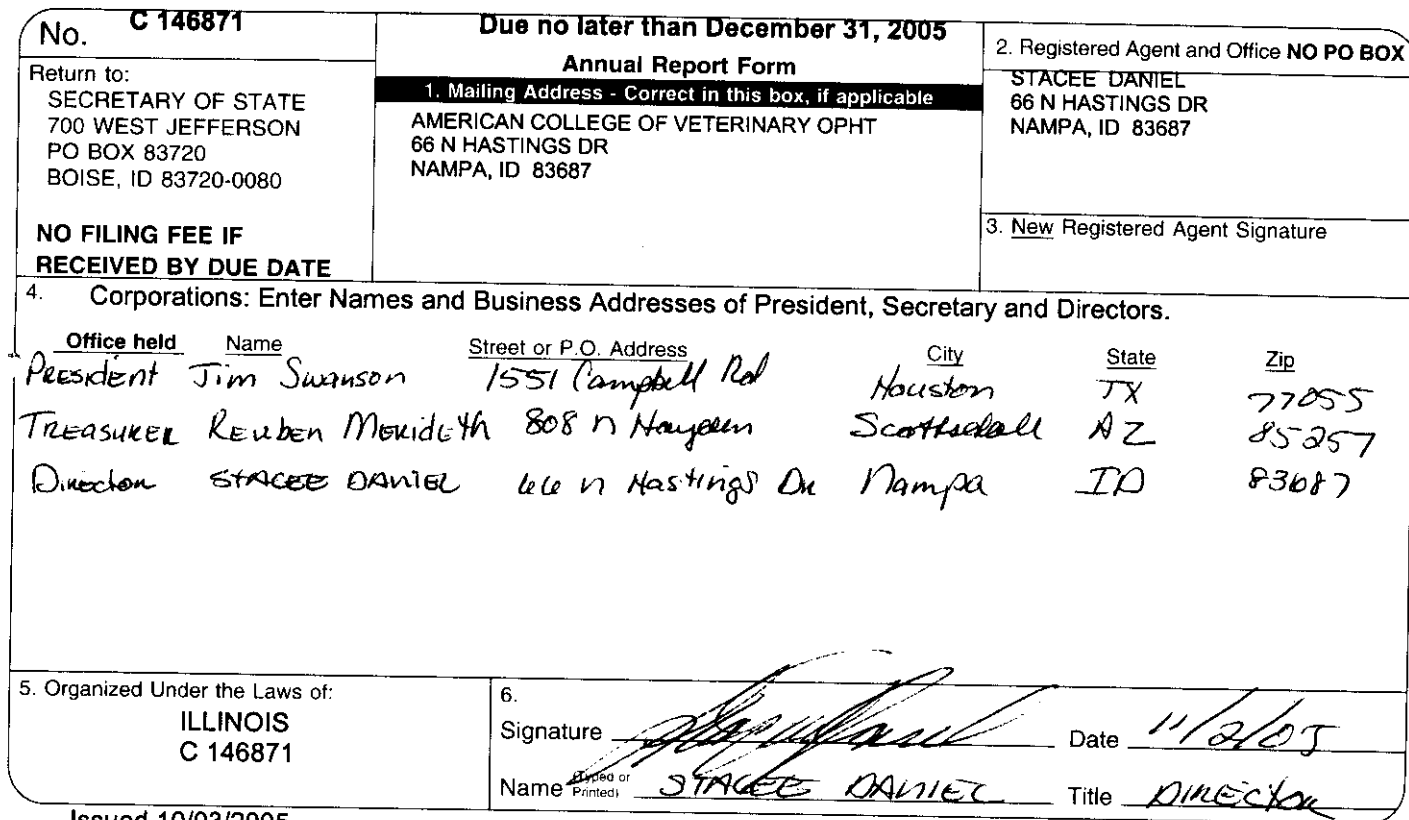 No. C 146871
Return to:
SECRETARY OF STATE
700 WEST JEFFERSON
PO BOX 83720
BOISE, ID 83720-0080
NO FILING FEE IF
RECEIVED BY DUE DATE
Due no later than December 31, 2005
Annual Report Form
1. Mailing Address - Correct in this box, if applicable
AMERICAN COLLEGE OF VETERINARY OPHT
66 N HASTINGS DR
NAMPA, ID 83687
2. Registered Agent and Office NO PO BOX
STACEE DANIEL
66 N HASTINGS DR
NAMPA, ID 83687
3. New Registered Agent Signature
4. Corporations: Enter Names and Business Addresses of President, Secretary and Directors.
Office held Name Street or P.O. Address City State Zip
President Jim Swanson 1551 Campbell Rd Houston TX 77055
Treasurer Reuben Merideth 808 N Hayden Scottsdale AZ 85257
Director STACEE DANIEL 66 N Hastings Dr Nampa ID 83687
5. Organized Under the Laws of:
ILLINOIS
C 146871
6.
Signature Date 11/2/05
Name (Typed or Printed) STACEE DANIEL Title DIRECTOR
Issued 10/03/2005